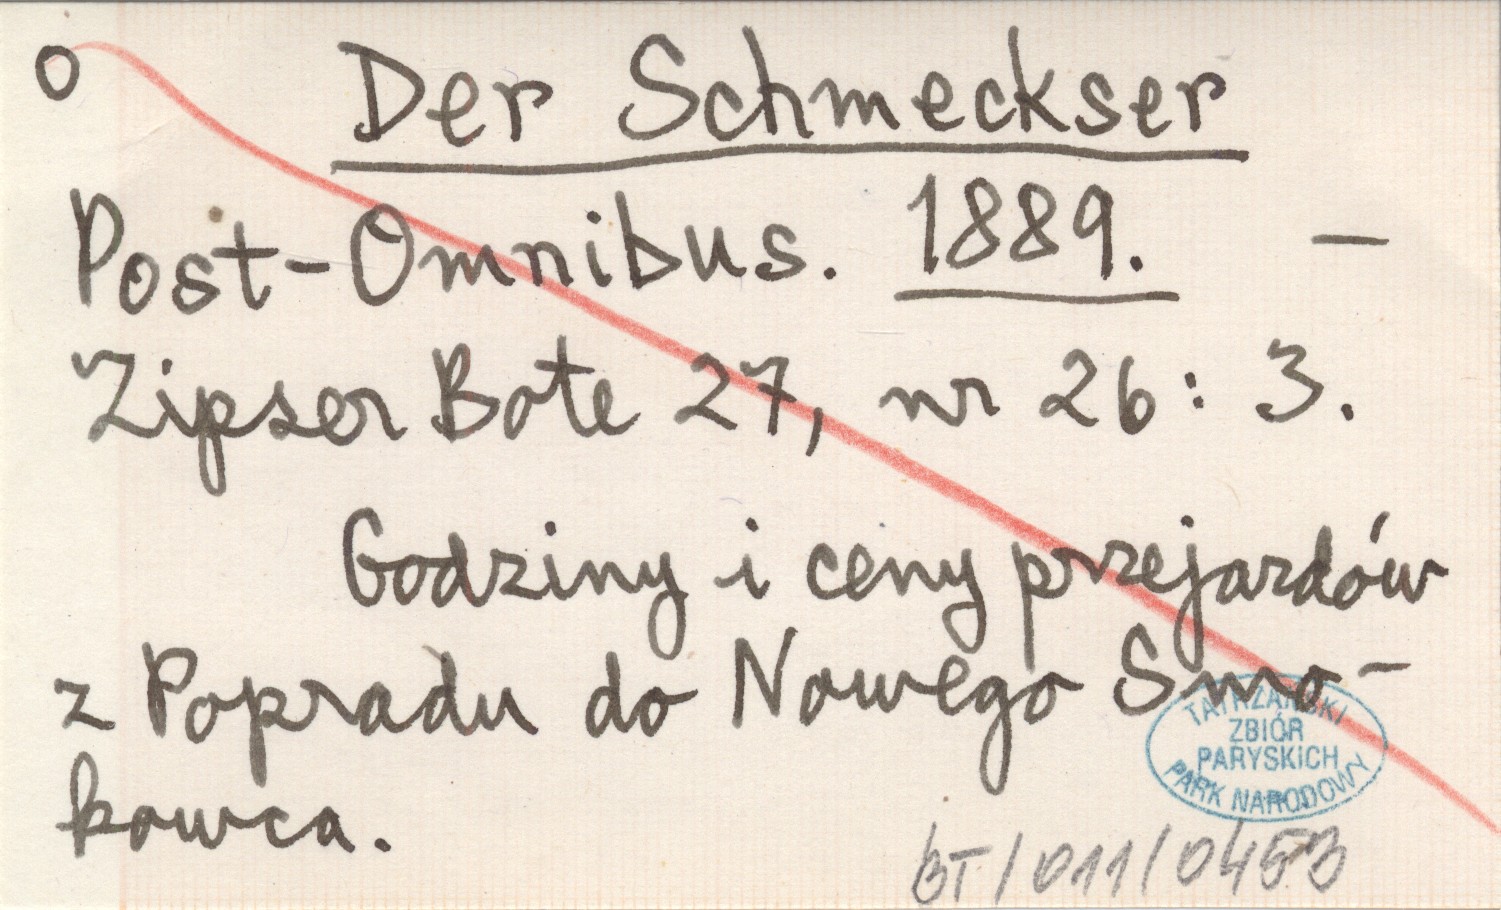 o Der Schmeckser
Post-Omnibus. 1889. —
Zipser Bote 27, nr 26: 3.
Godziny i ceny przejazdów
z Popradu do Nowego Smo-
kowca.
TATRZAŃSKI
ZBIÓR
PARYSKICH
PARK NARODOWY
BT/011/0453